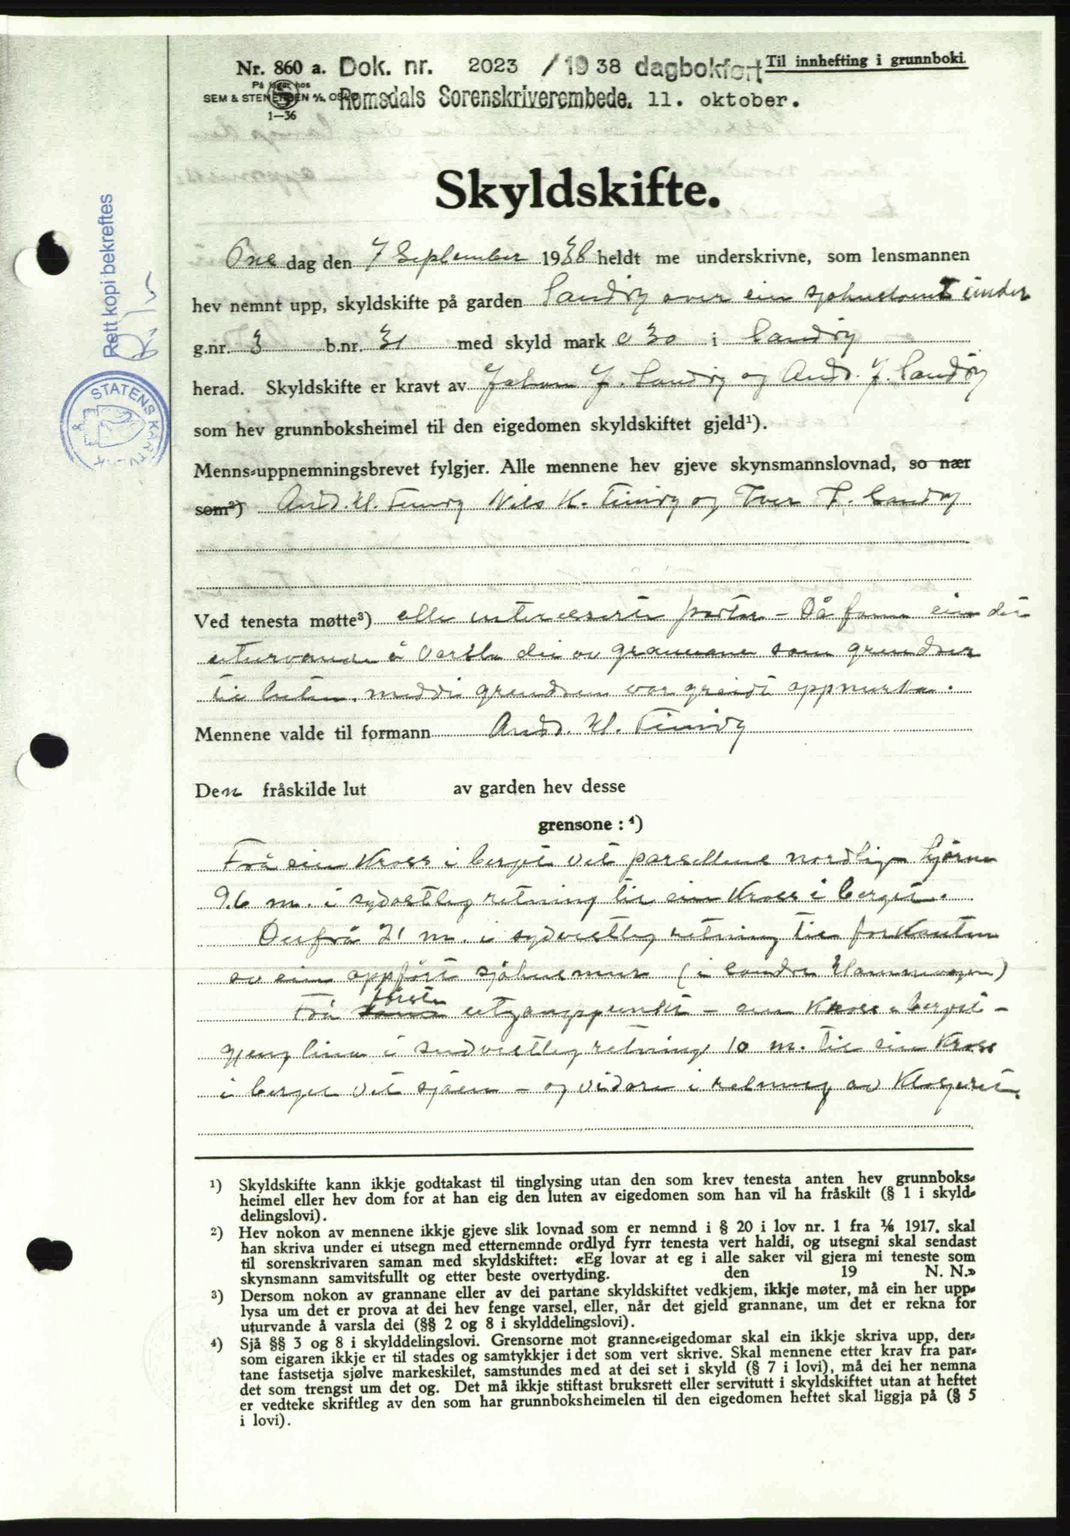 Nr. 860 a. Dok. nr. 2023 /1938 dagbokført Til innhefting i grunnboki
På lager hos
SEM & STENERSEN A/S, OSLO Romsdals Sorenskriverembede. 11. oktober.
1—36
Skyldskifte.
Rett kopi bekreftes
STATENS KARTV
dag den 7 September 1938 heldt me underskrivne, som lensmannen
hev nemnt upp, skyldskifte på garden Sandøy over ein sjøhustomt under
g.nr. 3 b.nr. 31 med skyld mark 0 30 i Sandøy
herad. Skyldskifte er kravt av Johan J. Sandøy og And. J. Sandøy
som hev grunnboksheimel til den eigedomen skyldskiftet gjeld¹).
Menns-uppnemningsbrevet fylgjer. Alle mennene hev gjeve skynsmannslovnad, so nær
som²) And. H. Finnøy Nils K. Finnøy og Iver T. Sandøy
Ved tenesta møtte³) alle interesserte partar – Då fann ein det
uturvande å varsla dei av grannane som grendser
til luten, meddi grendsene var greidt oppmerka.
Mennene valde til formann And. H. Finnøy
Den fråskilde lut av garden hev desse
grensone : ⁴)
Frå ein kross i berget vet parsellens nordlige hjørne
9.6 m. i sydøstleg retning til ein kross i berget.
Derfrå 21 m. i sydvestleg retning til forkanten
av ein oppført sjøhusmur (i søndre Hamnvågen)
Frå første utgangspunkt – ein kross i berget –
gjeng lina i sudvestleg retning 10 m. til ein kross
i berget vet sjøen – og vidare i retning av
¹) Skyldskifte kann ikkje godtakast til tinglysing utan den som krev tenesta anten hev grunnboks-
heimel eller hev dom for at han eig den luten av eigedomen som han vil ha fråskilt (§ 1 i skyld-
delingslovi).
²) Hev nokon av mennene ikkje gjeve slik lovnad som er nemnd i § 20 i lov nr. 1 fra 1/6 1917, skal
han skriva under ei utsegn med etternemnde ordlyd fyrr tenesta vert haldi, og utsegni skal sendast
til sorenskrivaren saman med skyldskiftet: «Eg lovar at eg i alle saker vil gjera mi teneste som
skynsmann samvitsfullt og etter beste overtyding. den 19 N. N.»
³) Dersom nokon av grannane eller av dei partane skyldskiftet vedkjem, ikkje møter, må ein her upp-
lysa um det er prova at dei hev fenge varsel, eller, når det gjeld grannane, um det er rekna for
uturvande å varsla dei (§§ 2 og 8 i skylddelingslovi).
⁴) Sjå §§ 3 og 8 i skylddelingslovi. Grensorne mot granne-eigedomar skal ein ikkje skriva upp, der-
som eigaren ikkje er til stades og samtykkjer i det som vert skrive. Skal mennene etter krav fra par-
tane fastsetja sjølve markeskilet, samstundes med at dei set i skyld (§ 7 i lovi), må dei her nemna
det som trengst um det og. Det må ikkje stiftast bruksrett eller servitutt i skyldskiftet utan at heftet
er vedteke skriftleg av den som har grunnboksheimelen til den eigedomen heftet skal liggja på (§ 5
i lovi).